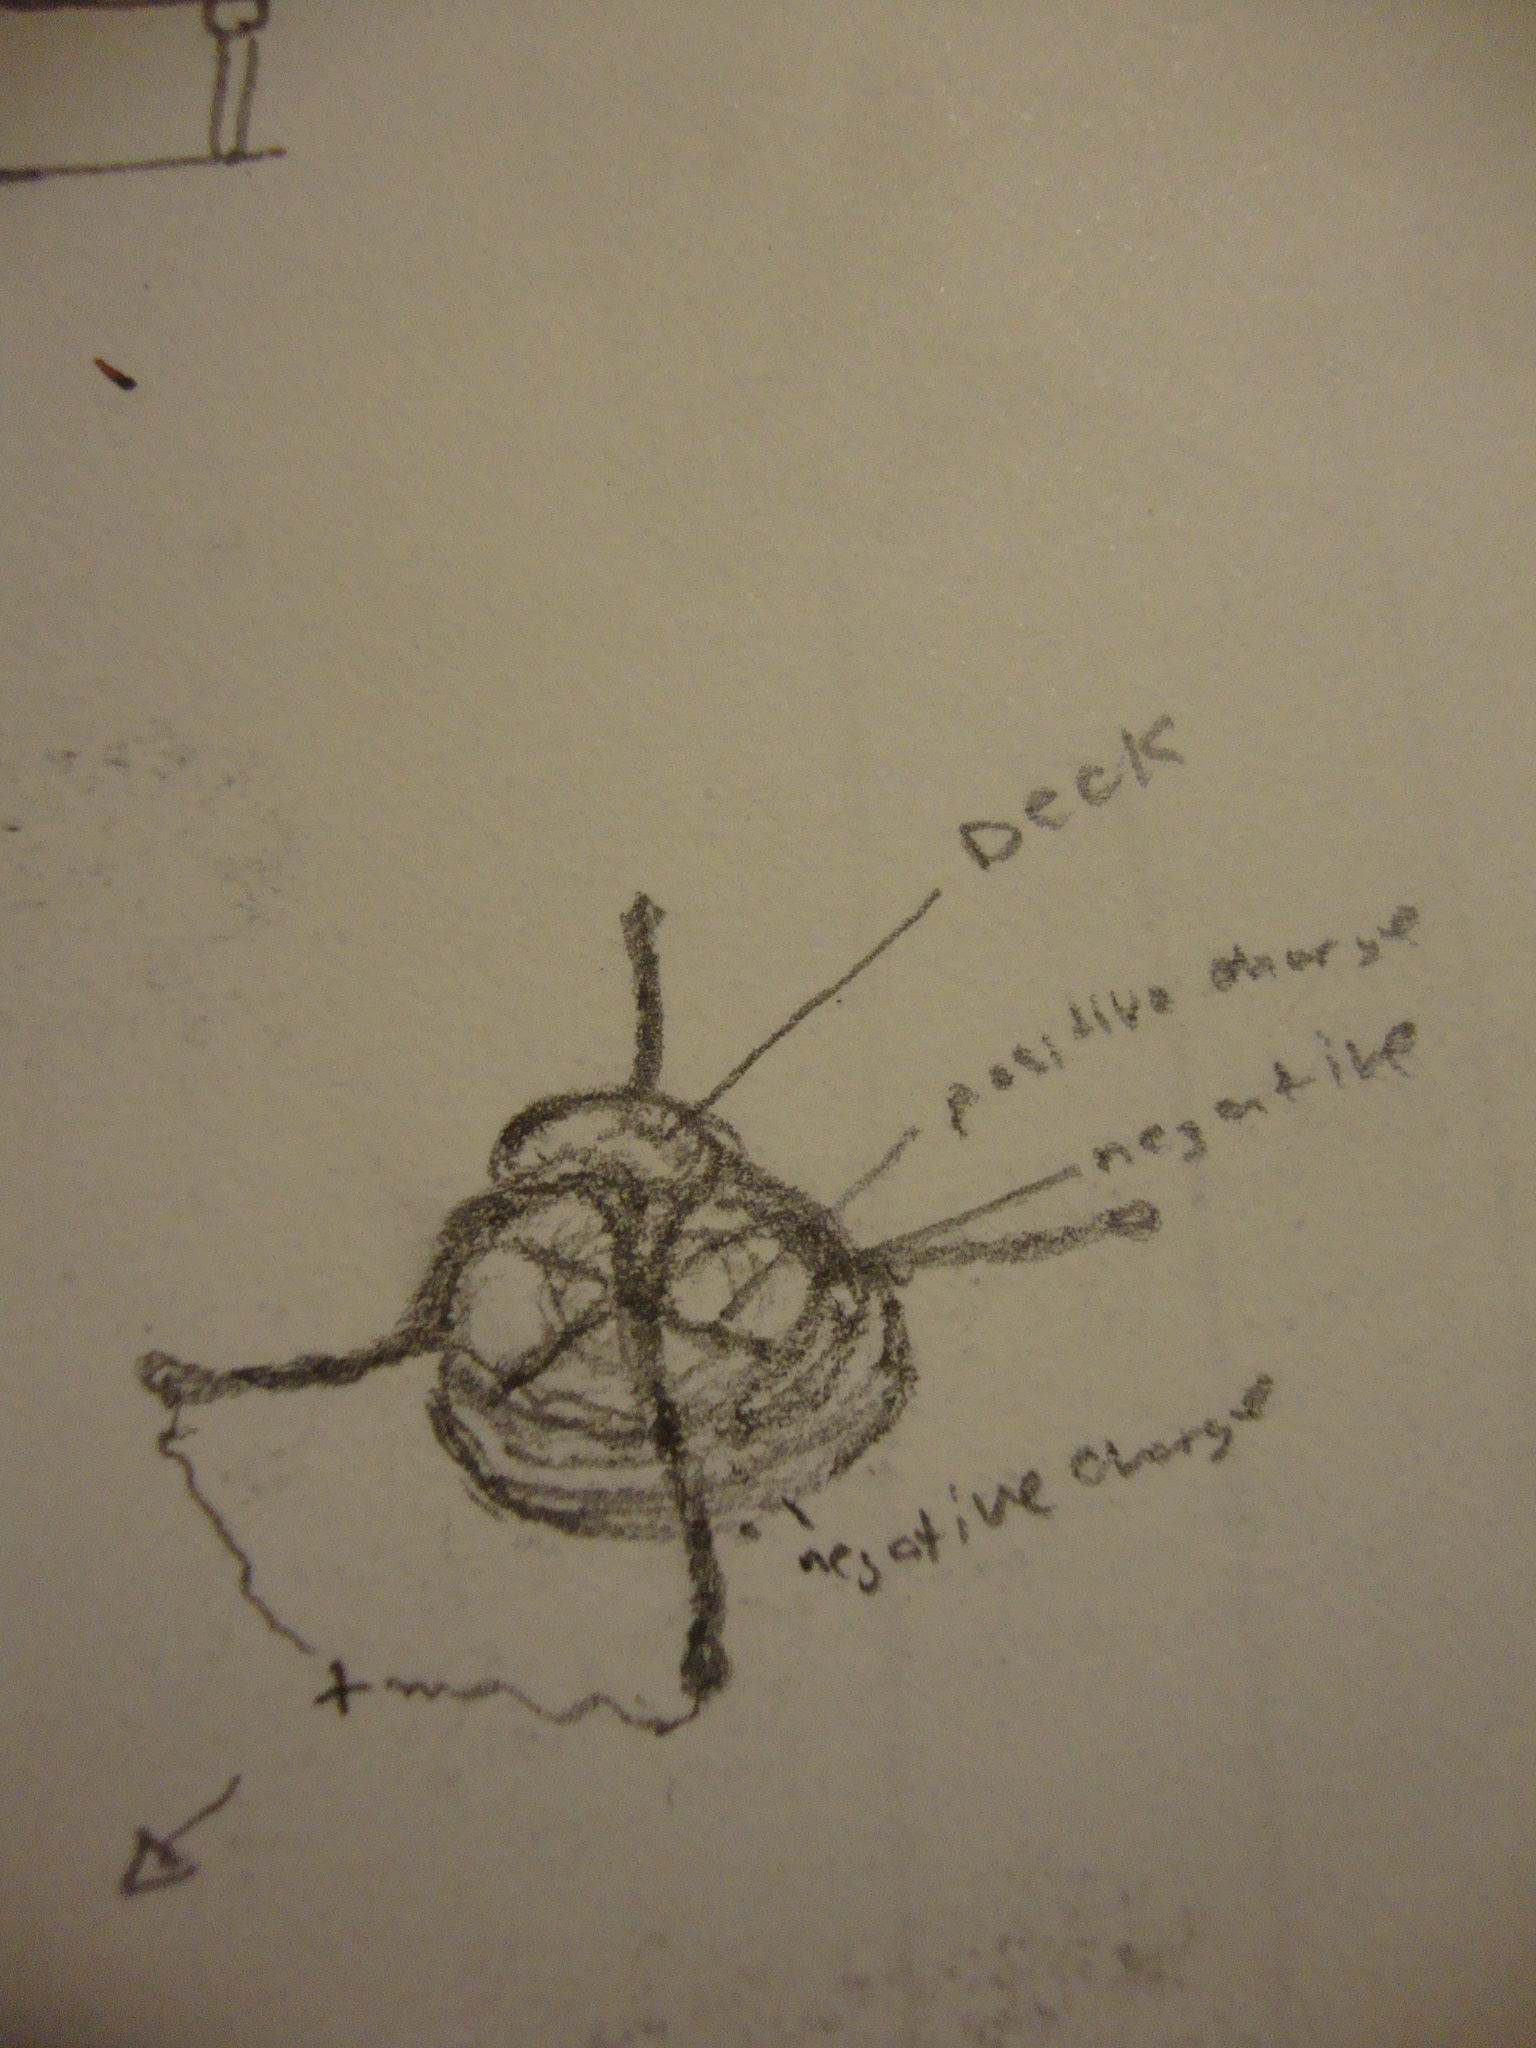 Deck
positive charge
negative
negative charge
+